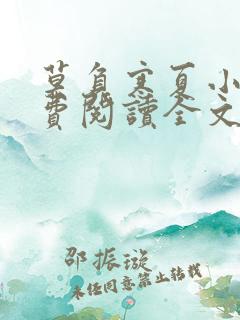 莫負寒夏小
費閱讀全文
邵振璇
未经同意禁止转载